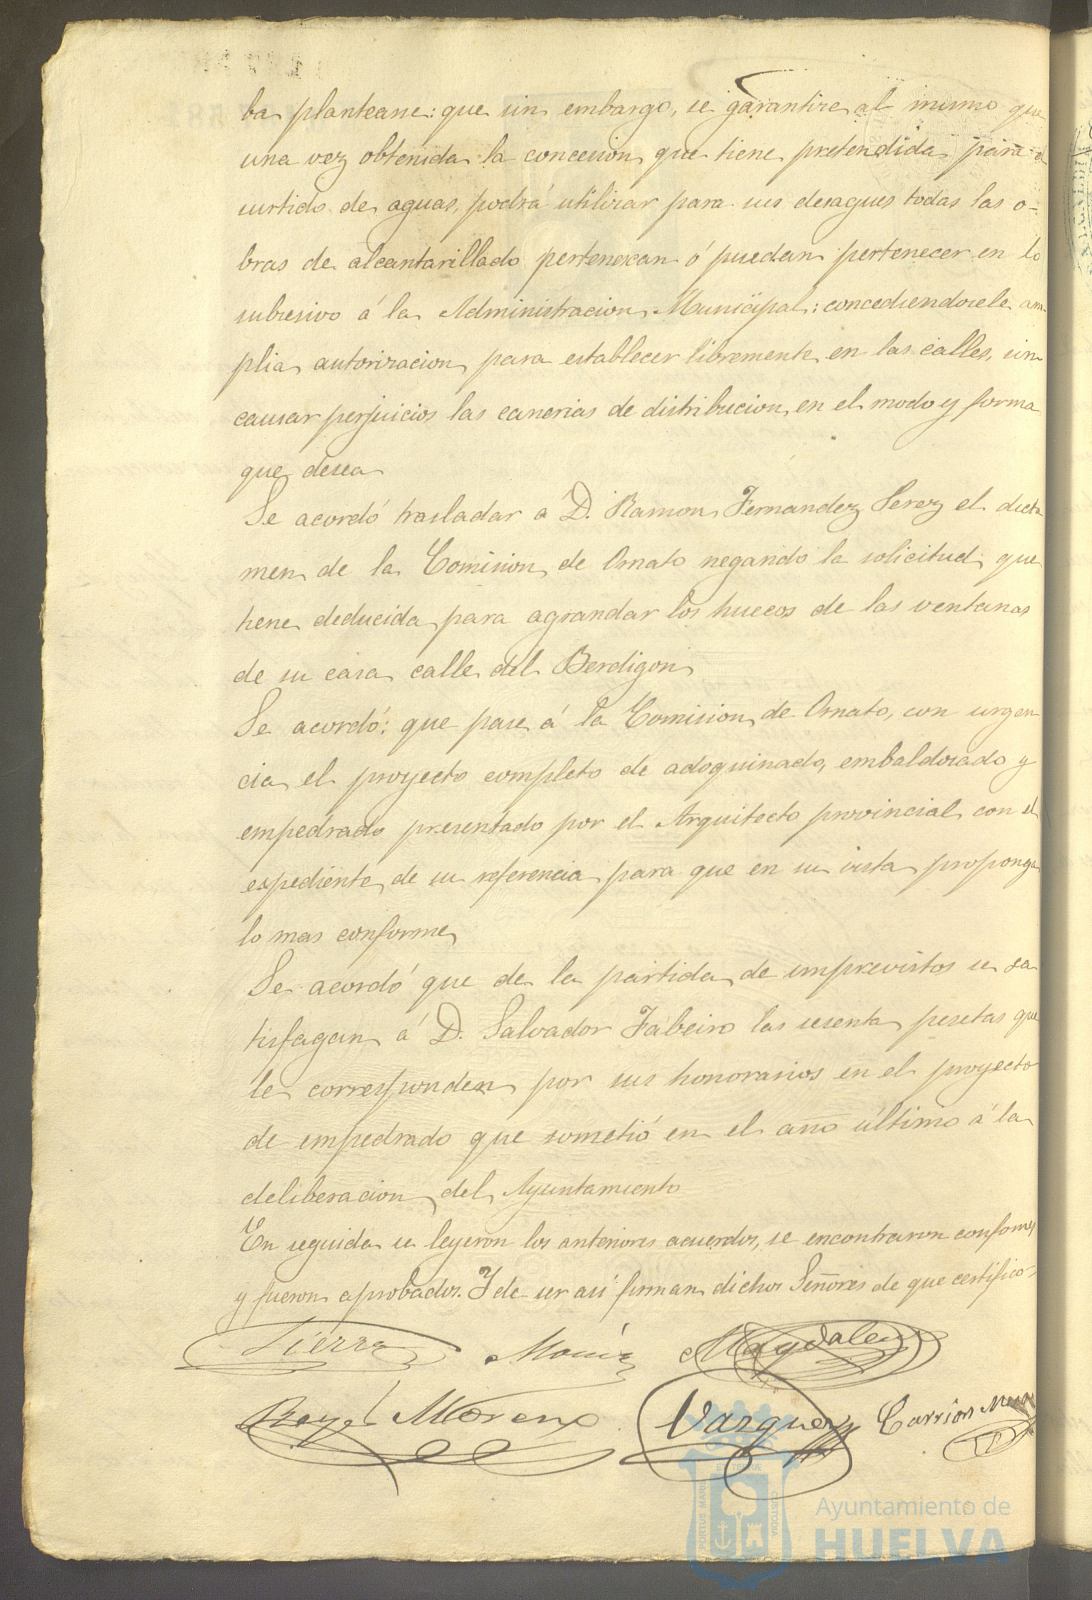 ba plantearse: que sin embargo, se garantice al mismo que
una vez obtenida la concesion que tiene pretendida para el
surtido de aguas, podrá utilizar para sus desagues todas las o-
bras de alcantarillado pertenezcan ó puedan pertenecer en lo
subcesivo á la Administracion Municipal: concediendosele am
plia autorizacion para establecer libremente en las calles, sin
causar perjuicios las cañerias de distribucion en el modo y forma
que desea
Se acordó trasladar á D. Ramon Fernandez Perez el dicta
men de la Comision de Ornato negando la solicitud que
tiene deducida para agrandar los huecos de las ventanas
de su casa calle del Berdigon
Se acordó: que pase á la Comision de Ornato, con urgen
cia el proyecto completo de adoquinado, embaldosado y
empedrado presentado por el Arquitecto provincial con el
espediente de su referencia para que en su vista proponga
lo mas conforme
Se acordó que de la partida de imprevistos se sa
tisfagan á D. Salvador Fabeiro las sesenta pesetas que
le corresponden por sus honorarios en el proyecto
de empedrado que sometió en el año último á la
deliberacion del Ayuntamiento
En seguida se leyeron los anteriores acuerdos, se encontraron conformes
y fueron aprobados. Y de ser así firman dichos Señores de que certifico
Sierra Magdalena
Moreno Vazquez Carrion
PORTUS MARIS CUSTODIA
Ayuntamiento de
HUELVA